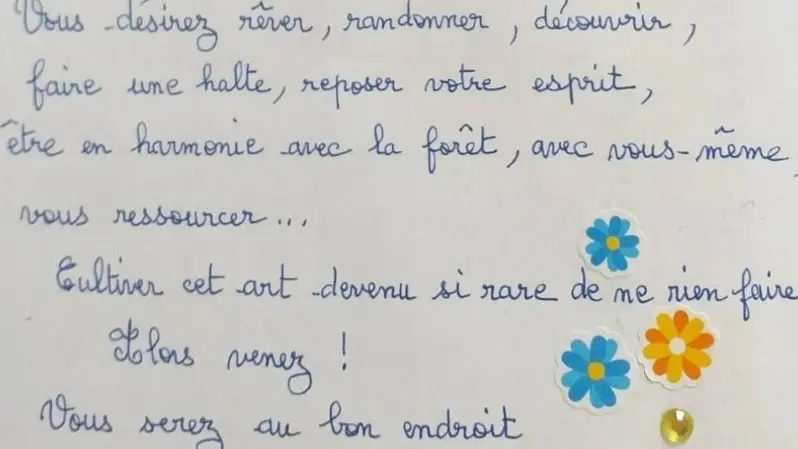 Vous désirez rêver, randonner, découvrir,
faire une halte, reposer votre esprit,
être en harmonie avec la forêt, avec vous-même,
vous ressourcer...
Cultiver cet art devenu si rare de ne rien faire
Alors venez !
Vous serez au bon endroit